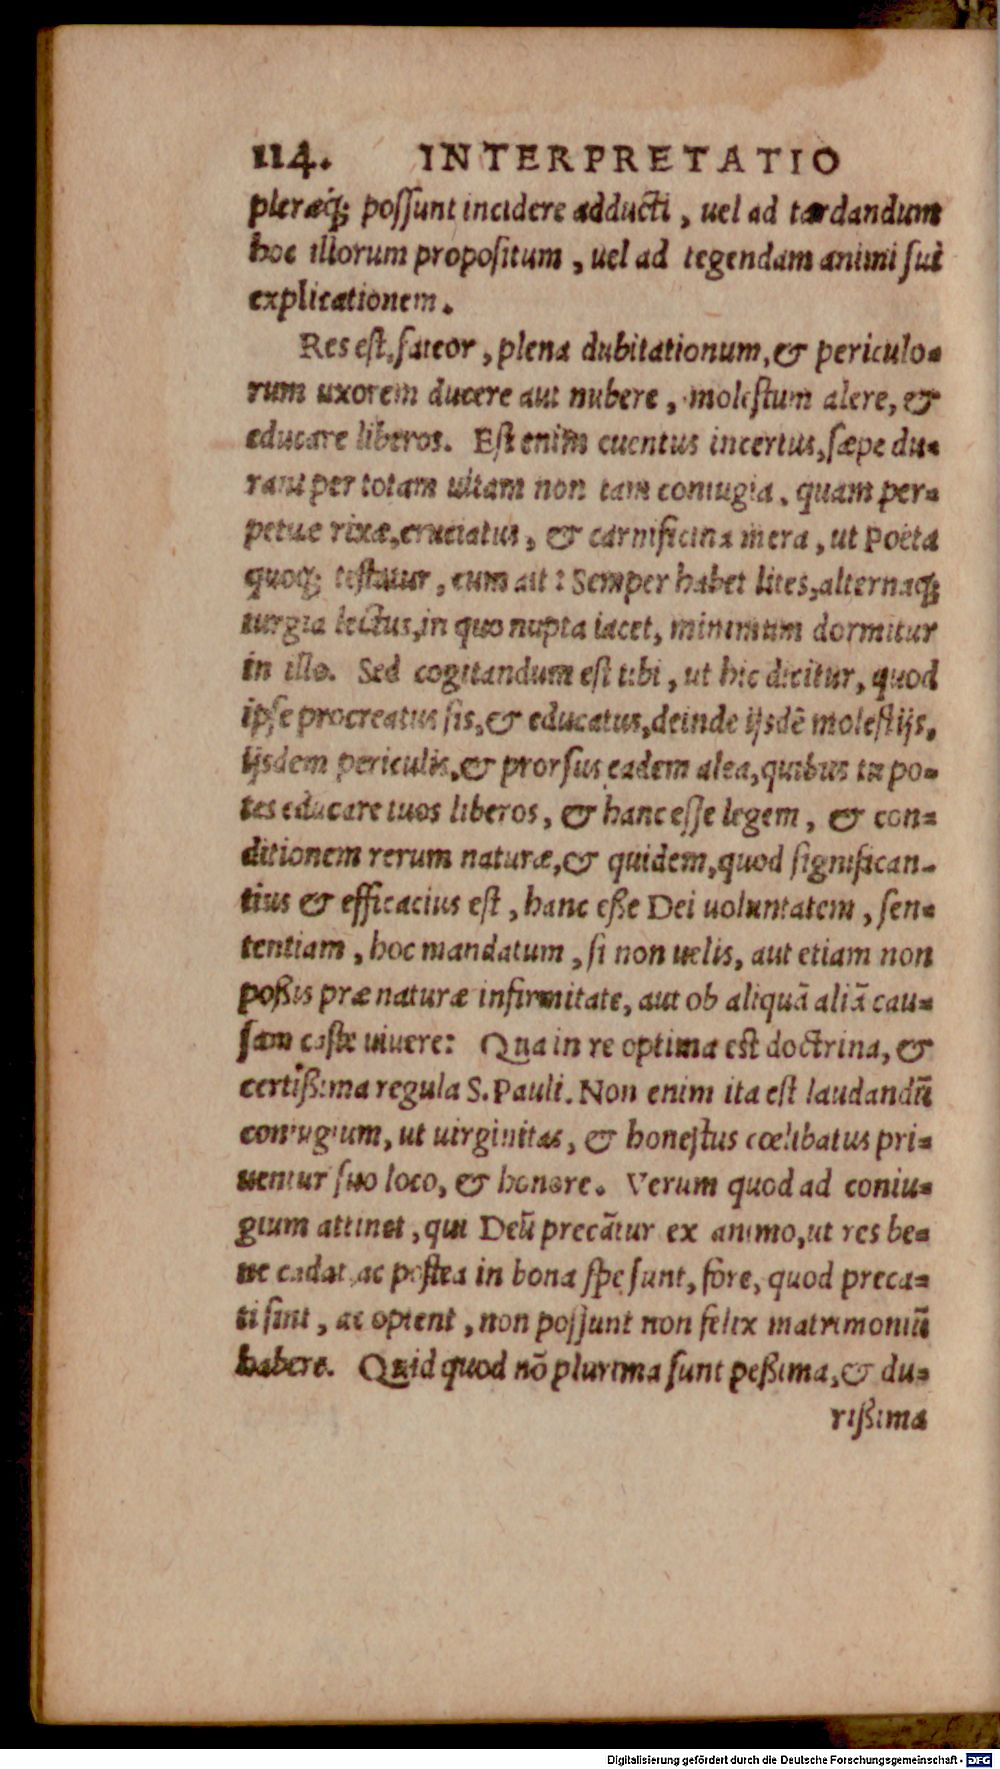 114. INTERPRETATIO
pleræq; possunt incidere adducti, uel ad tardandum
hoc illorum propositum, uel ad tegendam animi sui
explicationem.
Res est, fateor, plena dubitationum, & periculo-
rum uxorem ducere aut nubere, molestum alere, &
educare liberos. Est enim euentus incertus, sæpe du-
rant per totam uitam non tam coniugia, quam per-
petuæ rixæ, cruciatus, & carnificina mera, ut Poëta
quoq; testatur, cum ait: Semper habet lites, alternaq;
iurgia lectus, in quo nupta iacet, minimum dormitur
in illo. Sed cogitandum est tibi, ut hic dicitur, quod
ipse procreatus sis, & educatus, deinde ijsdē molestijs,
ijsdem periculis, & prorsus eadem alea, quibus tu po-
tes educare tuos liberos, & hanc esse legem, & con-
ditionem rerum naturæ, & quidem, quod significan-
tius & efficacius est, hanc eße Dei uoluntatem, sen-
tentiam, hoc mandatum, si non uelis, aut etiam non
poßis præ naturæ infirmitate, aut ob aliquā aliā cau-
sam caste uiuere: Qua in re optima est doctrina, &
certißima regula S. Pauli. Non enim ita est laudandū
coniugium, ut uirginitas, & honestus cœlibatus pri-
uentur suo loco, & honore. Verum quod ad coniu-
gium attinet, qui Deū precātur ex animo, ut res be-
ne cadat, ac postea in bona spe sunt, fore, quod preca-
ti sint, ac optent, non possunt non felix matrimoniū
habere. Quid quod nō plurima sunt peßima, & du-
rißima
Digitalisierung gefördert durch die Deutsche Forschungsgemeinschaft - DFG